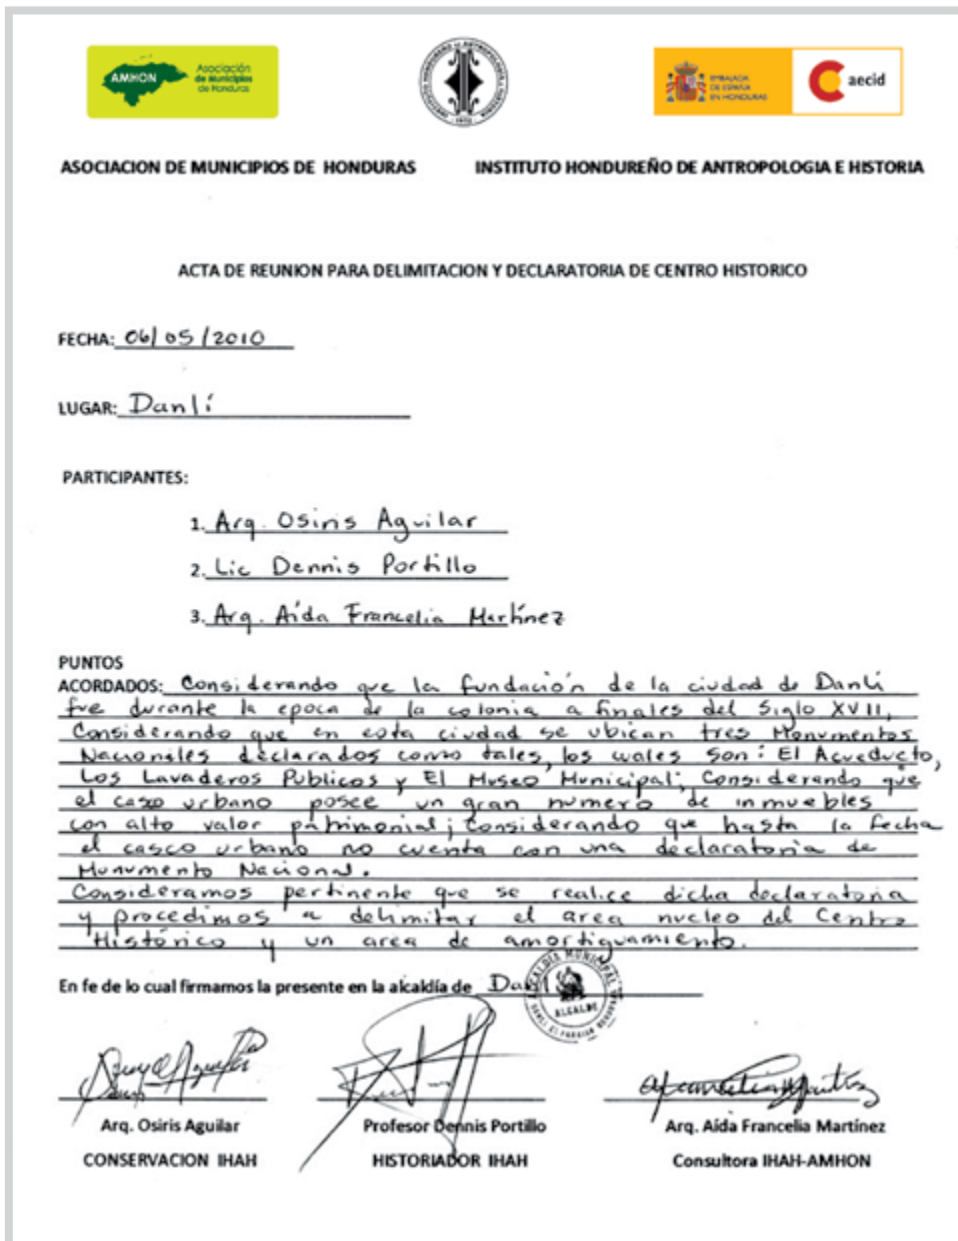 AMHON
Asociación
de Municipios
de Honduras
INSTITUTO HONDUREÑO DE ANTROPOLOGIA E HISTORIA
1952
EMBAJADA
DE ESPAÑA
EN HONDURAS
aecid
ASOCIACION DE MUNICIPIOS DE HONDURAS
INSTITUTO HONDUREÑO DE ANTROPOLOGIA E HISTORIA
ACTA DE REUNION PARA DELIMITACION Y DECLARATORIA DE CENTRO HISTORICO
FECHA: 06/05/2010
LUGAR: Danlí
PARTICIPANTES:
1. Arq. Osiris Aguilar
2. Lic Dennis Portillo
3. Arq. Aída Francelia Martínez
PUNTOS
ACORDADOS: Considerando que la fundación de la ciudad de Danlí
fue durante la epoca de la colonia a finales del Siglo XVII,
Considerando que en esta ciudad se ubican tres Monumentos
Nacionales declarados como tales, los cuales son: El Acueducto,
Los Lavaderos Publicos y El Museo Municipal; Considerando que
el casco urbano posee un gran numero de inmuebles
con alto valor patrimonial; Considerando que hasta la fecha
el casco urbano no cuenta con una declaratoria de
Monumento Nacional.
Consideramos pertinente que se realice dicha declaratoria
y procedimos a delimitar el area nucleo del Centro
Histórico y un area de amortiguamiento.
En fe de lo cual firmamos la presente en la alcaldía de Danlí
ALCALDIA MUNICIPAL
ALCALDE
DANLI EL PARAISO HONDURAS
Arq. Osiris Aguilar
Profesor Dennis Portillo
Arq. Aída Francelia Martínez
CONSERVACION IHAH
HISTORIADOR IHAH
Consultora IHAH-AMHON